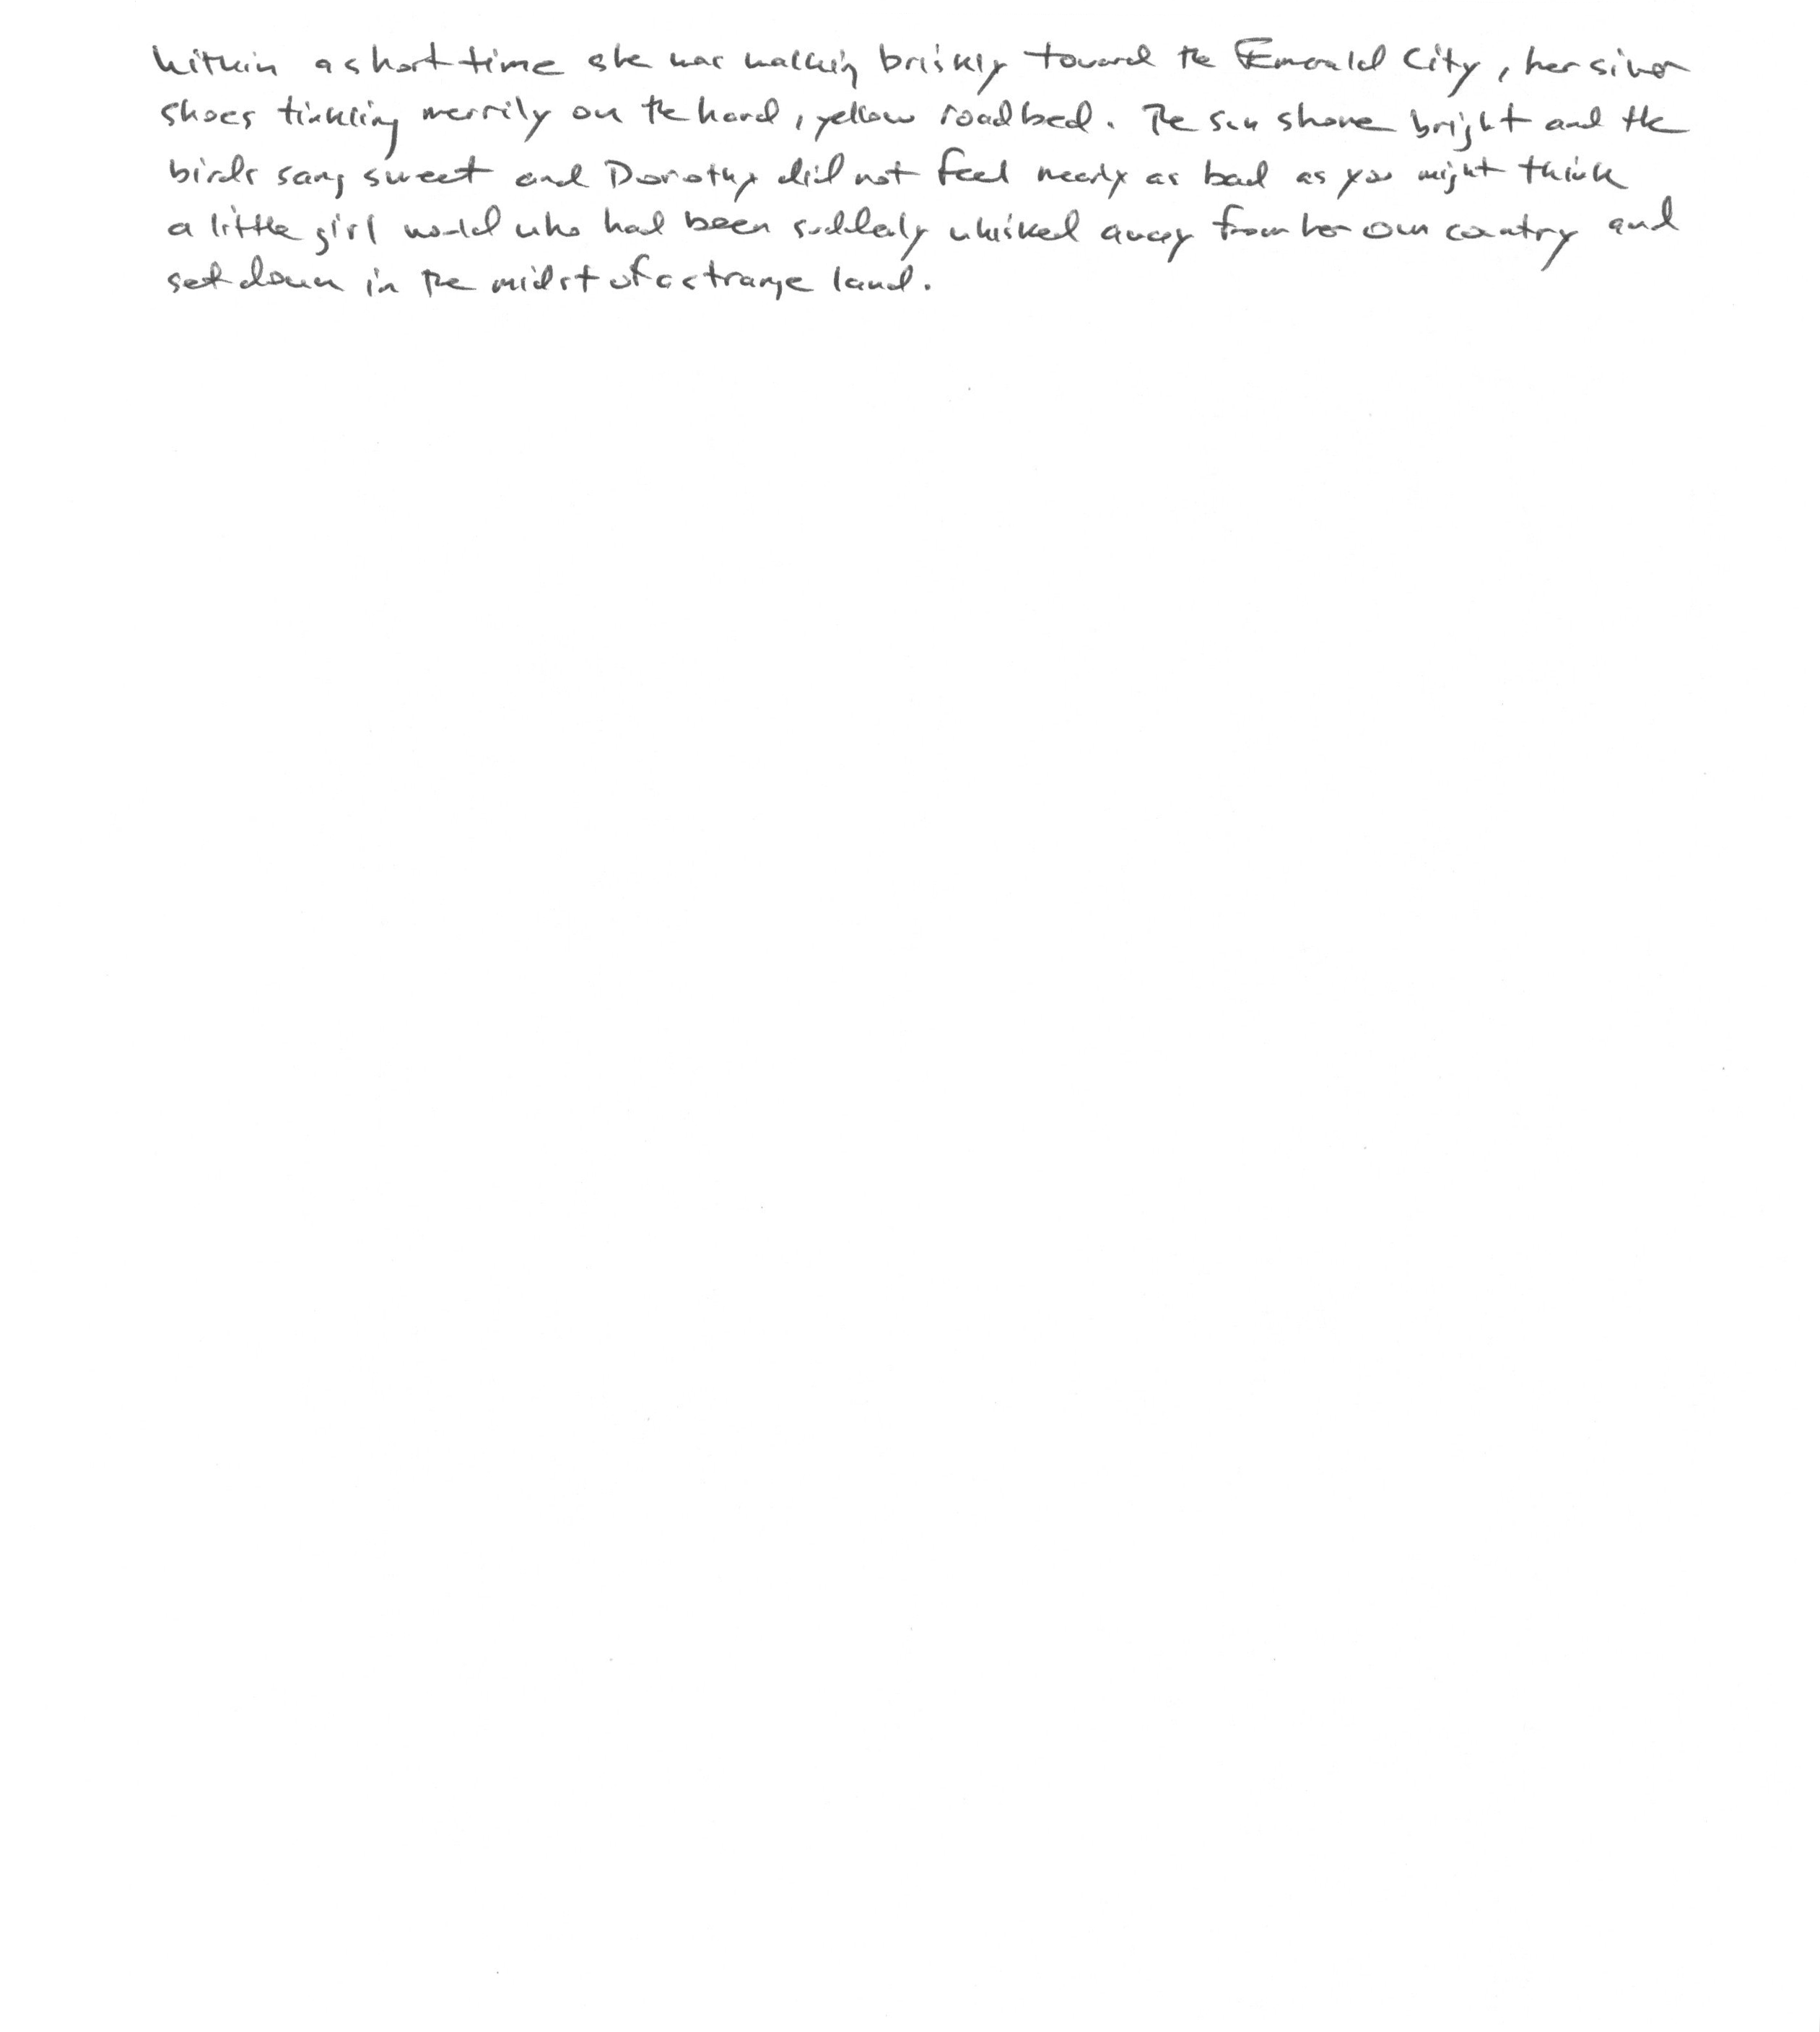 Within a short time she was walking briskly toward the Emerald City, her silver
shoes tinkling merrily on the hard, yellow roadbed. The sun shone bright and the
birds sang sweet and Dorothy did not feel nearly as bad as you might think
a little girl would who had been suddenly whisked away from her own country and
set down in the midst of a strange land.